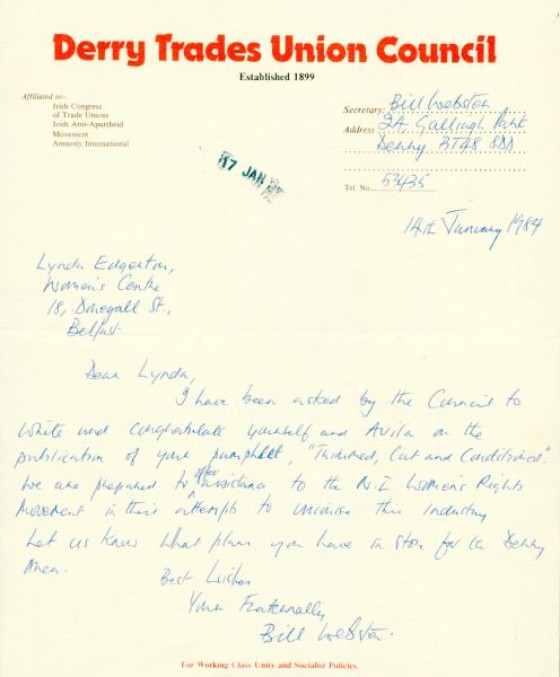 Derry Trades Union Council
Established 1899
Affiliated to:-
Irish Congress
of Trade Unions
Irish Anti-Apartheid
Movement
Amnesty International
Secretary: Bill Webster
Address 2A, Galliagh Park
Derry BT48 8DD
Tel. No. 53435
17 JAN
14th January 1984
Lynda Edgerton,
Women's Centre
18, Donegall St.,
Belfast
Dear Lynda,
I have been asked by the Council to
write and congratulate yourself and Avila on the
publication of your pamphlet, "Trimmed, Cut and Conditioned"
We are prepared to offer assistance to the N.I. Women's Rights
Movement in their attempts to unionise this industry
Let us know what plans you have in store for the Derry
Area.
Best Wishes
Yours Fraternally
Bill Webster.
For Working Class Unity and Socialist Policies.